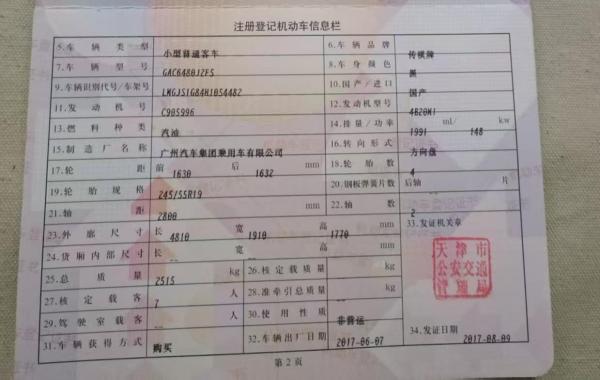 注册登记机动车信息栏
5.车辆类型 小型普通客车 6.车辆品牌 传祺牌
7.车辆型号 GAC6480J2F5 8.车身颜色 黑
9.车辆识别代号/车架号 LMGJS1G84H1054482 10.国产/进口 国产
11.发动机号 C905996 12.发动机型号 4B20M1
13.燃料种类 汽油 14.排量/功率 1991 ml/ 148 kw
15.制造厂名称 广州汽车集团乘用车有限公司 16.转向形式 方向盘
17.轮距 前 1630 后 1632 mm 18.轮胎数 4
19.轮胎规格 245/55R19 20.钢板弹簧片数 后轴 片
21.轴距 2800 mm 22.轴数 2
23.外廓尺寸 长 4810 宽 1910 高 1770 mm 33.发证机关章
24.货厢内部尺寸 长 -- 宽 -- 高 -- mm
天津市
公安交通
管理局
25.总质量 2515 kg 26.核定载质量 -- kg
27.核定载客 7 人 28.准牵引总质量 -- kg
29.驾驶室载客 -- 人 30.使用性质 非营运
31.车辆获得方式 购买 32.车辆出厂日期 2017-06-07 34.发证日期 2017-08-09
第2页